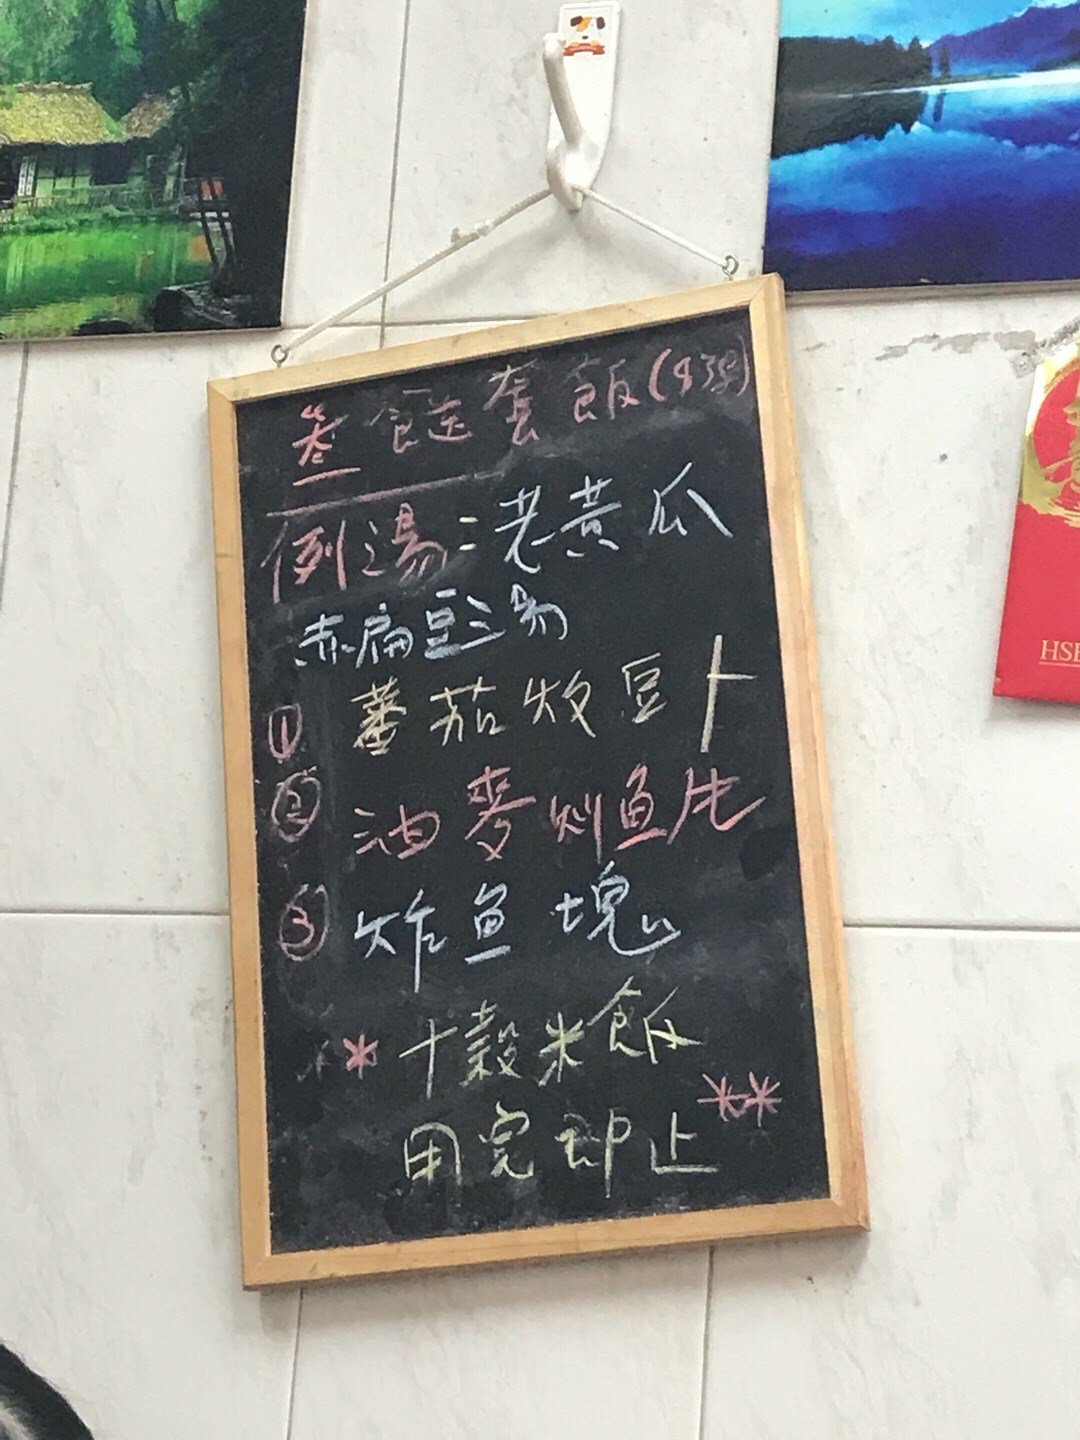 叁餸套飯(43
例湯：老黃瓜
赤扁豆湯
① 蕃茄炆豆卜
② 油麥灼鱼片
③ 炸鱼塊
* 十穀米飯
用完即止**